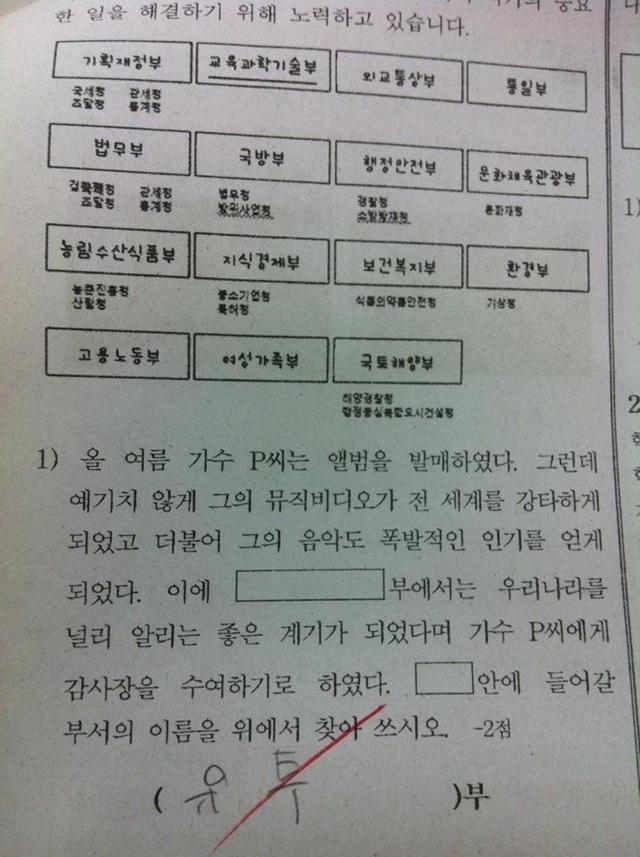 한 일을 해결하기 위해 노력하고 있습니다.
기획재정부 교육과학기술부 외교통상부 통일부
국세청 관세청
조달청 통계청
법무부 국방부 행정안전부 문화체육관광부
검찰청 관세청 병무청 경찰청 문화재청
조달청 통계청 방위사업청 소방방재청
농림수산식품부 지식경제부 보건복지부 환경부
농촌진흥청 중소기업청 식품의약품안전청 기상청
산림청 특허청
고용노동부 여성가족부 국토해양부
해양경찰청
행정중심복합도시건설청
1) 올 여름 가수 P씨는 앨범을 발매하였다. 그런데
예기치 않게 그의 뮤직비디오가 전 세계를 강타하게
되었고 더불어 그의 음악도 폭발적인 인기를 얻게
되었다. 이에 부에서는 우리나라를
널리 알리는 좋은 계기가 되었다며 가수 P씨에게
감사장을 수여하기로 하였다. 안에 들어갈
부서의 이름을 위에서 찾아 쓰시오. -2점
( 유 튜 )부